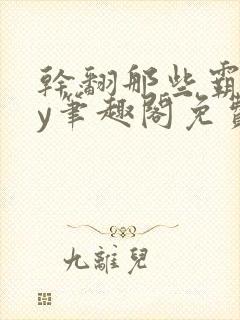 幹翻那些霸
y筆趣閣免費
九離兒